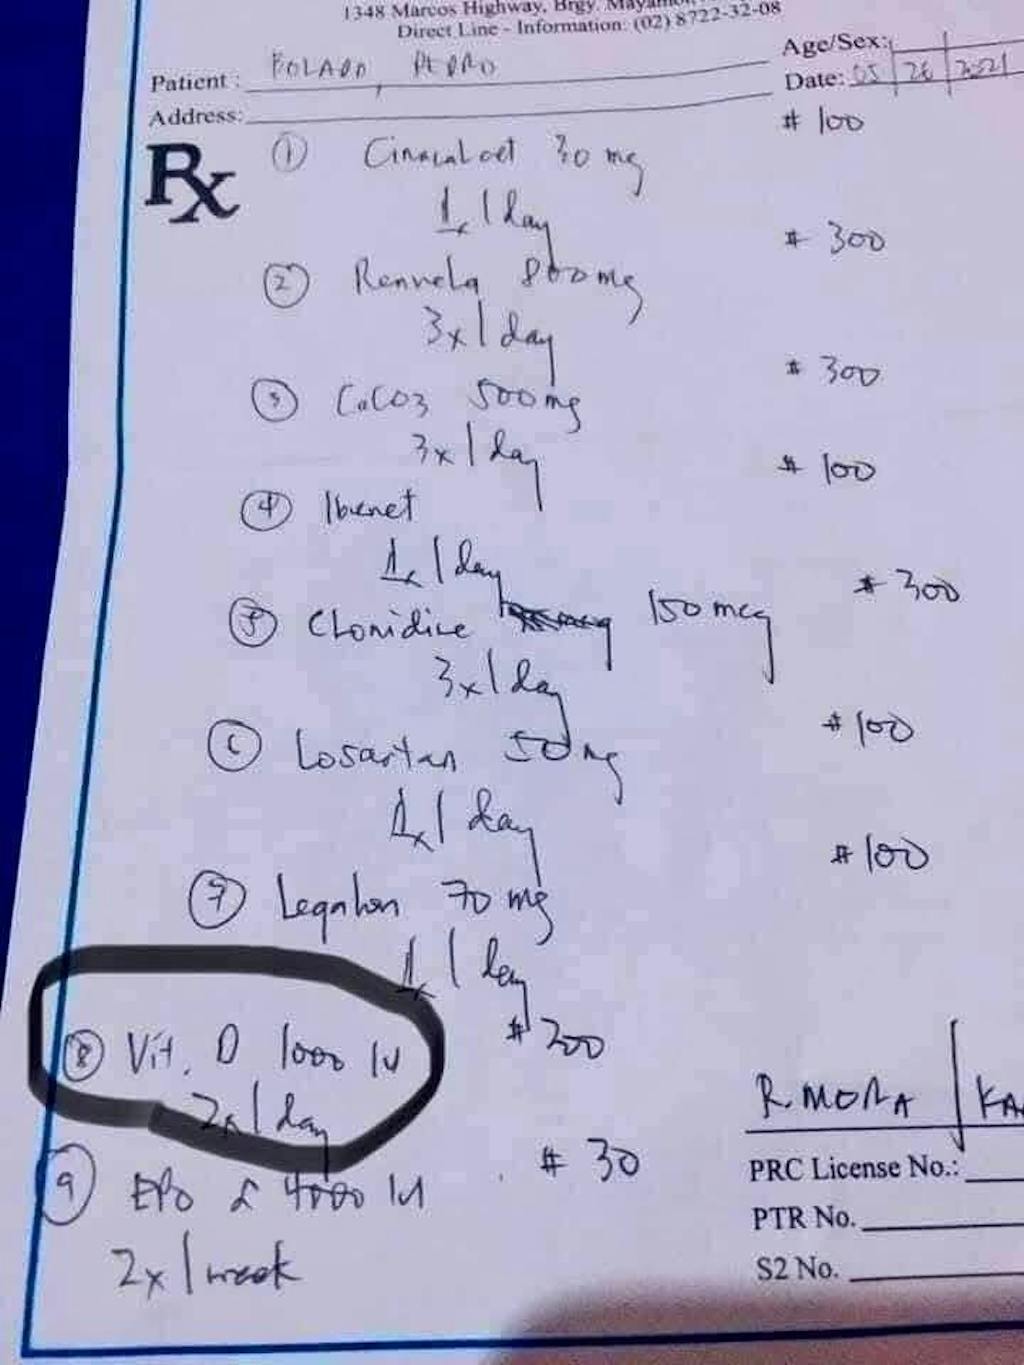 1348 Marcos Highway, Brgy.
Direct Line - Information: (02) 8722-32-08
Patient : BOLADO, PEDRO
Age/Sex:
Date: 05 26 2021
Address:
Rx
① Cinacalcet 30 mg # 100
1x / day
② Renvela 800 mg # 300
3x / day
③ CaCO3 500mg # 300
3x / day
④ Iberet # 100
1x / day
⑤ Clonidine 150 mcg # 300
3x / day
⑥ Losartan 50 mg # 100
1x / day
⑦ Legalon 70 mg # 100
1x / day
⑧ Vit. D 1000 IU # 200
2x / day
⑨ EPO 4000 IU # 30
2x / week
R. MORA /
PRC License No.:
PTR No.
S2 No.